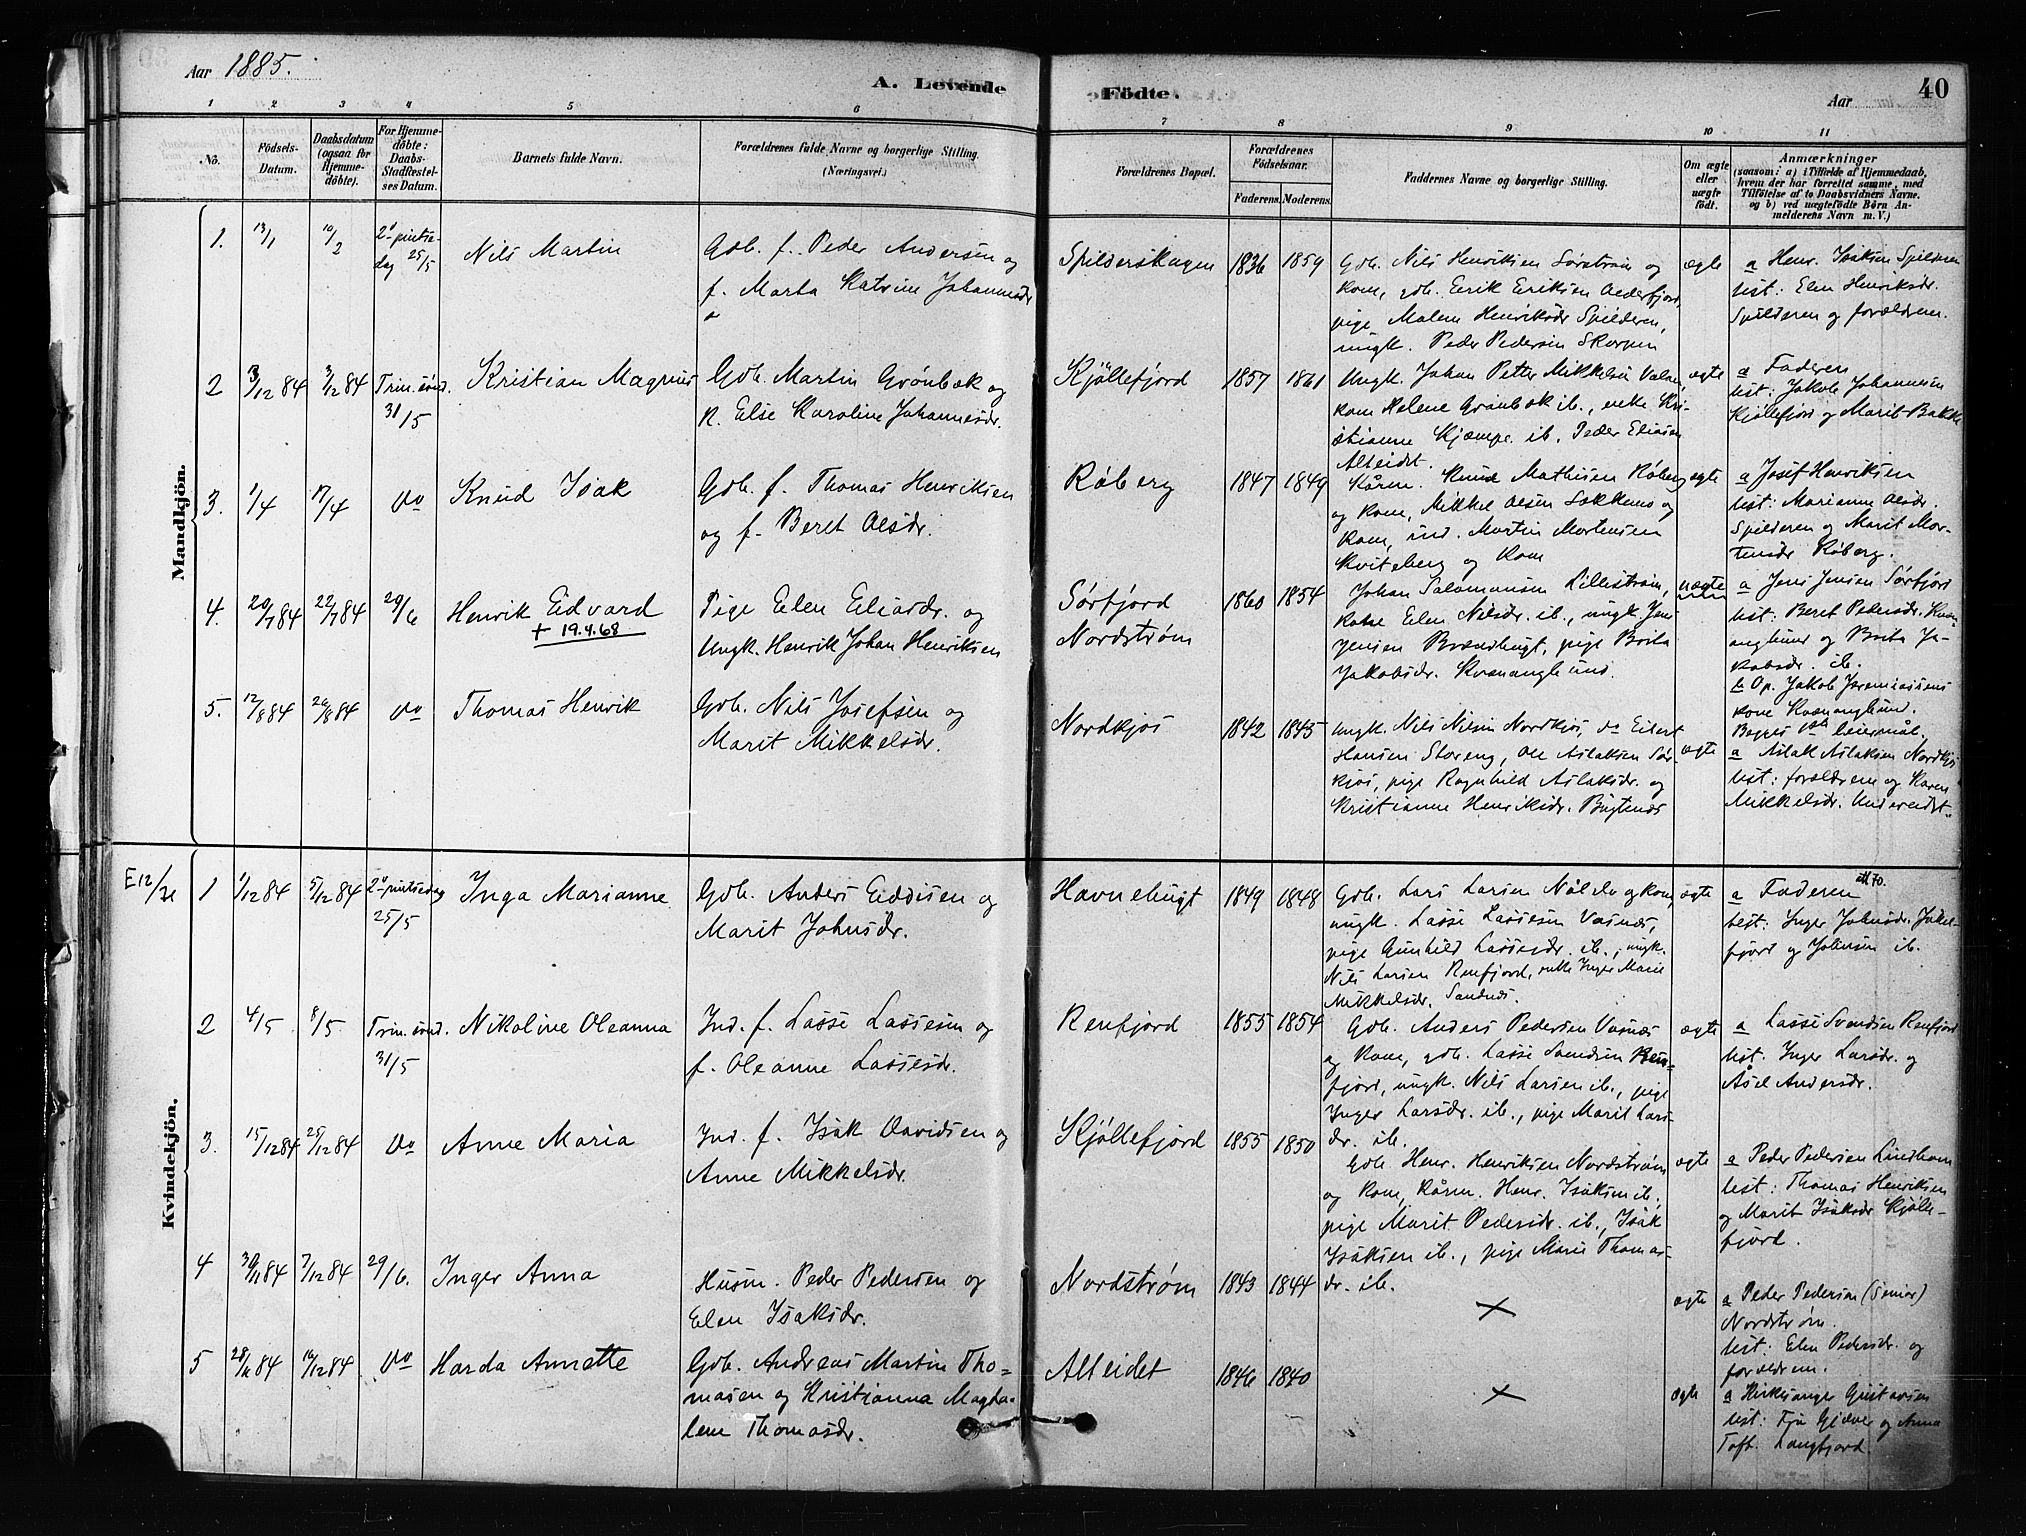 Aar 1885.
A. Levende
Födte.
Aar
40
1 2 3 4 5 6 7 8 9 10 11
No.
Födsels-
Datum.
Daabsdatum
(ogsaa for
Hjemme-
döbte).
For Hjemme-
döbte:
Daabs-
Stadfæstel-
ses Datum.
Barnets fulde Navn.
Forældrenes fulde Navne og borgerlige Stilling.
(Næringsvei.)
Forældrenes Bopæl.
Forældrenes
Födselsaar.
Faderens. Moderens.
Faddernes Navne og borgerlige Stilling.
Om ægte
eller
uægte
födt.
Anmærkninger
(saasom: a) i Tilfælde af Hjemmedaab,
hvem der har forrettet samme, med
Tilföielse af to Daabsvidners Navne.
og b) ved uægtefödte Börn An-
melderens Navn m. V.)
Mandkjön.
1. 13/1 10/2 2d pintse-
dag 25/5
Nils Martin
Gdb. f. Peder Andersen og
f. Marta Katrine Johannesdr
Spilderskagen 1836 1859
Gdb. Nils Henriksen Sørstrøm og
kone, gdb. Erik Eriksen Olderfjord,
pige Malene Henriksdr Spilderen,
ungk. Peder Pedersen Skorpen
ægte
a Henr. Isaksen Spilderen
test: Elen Henriksdr.
Spilderen og forældrene.
2 3/12 84 3/12 84 Trin. sønd.
31/5
Kristian Magnus
Gdb. Martin Grönbæk og
k. Else Karoline Johannesdr.
Kjöllefjord 1857 1861
Ungk. Johan Petter Mikkelsen
kone Helene Grönbæk ib., enke Kri-
stianne Kjæmpe ib. Peder Eliasen
Alteidet.
ægte
a Faderen
test: Jakob Johannesen
Kjöllefjord og Marit Bakke
3. 1/4 17/4 do
Knud Isak
Gdb. f. Thomas Henriksen
og f. Beret Olsdr.
Røberg 1847 1849
Kårm. Knud Mathisen Røberg
og kone, Mikkel Olsen Sokkens og
kone, ind. Martin Mortensen
Kviteberg og kone
ægte
a Josef Henriksen
test: Marianne Olsdr.
Spilderen og Marit Mor-
tensdr Røberg.
4. 20/7 84 22/7 84 29/6
Henrik Edvard
+ 19.4.68
Pige Elen Eliasdr. og
Ungk. Henrik Johan Henriksen
Sørfjord
Nordstrøm
1860 1854
Johan Salamonsen Lillestrøm,
kone Elen Nilsdr. ib., ungk. Jens
Jensen Brændbugt, pige Brita
Jakobsdr. Kvænangbund.
uægte
a Jens Jensen Sørfjord
test: Beret Pedersdr. Kvæn-
angbund og Brita Ja-
kobsdr. ib.
b Op. Jakob Jeremiassens
kone Kvænangbund.
Begges 1ste leiermål.
5. 12/8 84 20/8 84 do
Thomas Henrik
Gdb. Nils Josefsen og
Marit Mikkelsdr.
Nordkjos 1842 1845
Ungk. Nils Nilsen Nordkjos, do Eilert
Hansen Storeng, Ole Aslaksen Sør-
kjos, pige Ragnhild Aslaksdr. og
Kristianne Henriksdr. Bugtenæs
ægte
a Aslak Aslaksen Nordkjos
test: forældrene og Karen
Mikkelsdr. Undereidet.
Kvindekjön.
E12/31
1 1/12 84 5/12 84 2d pintsedag
25/5
Inga Marianne
Gdb. Anders Eddisen og
Marit Johnsdr.
Havnebugt 1849 1848
Gdb. Lars Larsen Nålelv og kone,
ungk. Lasse Lassesen Vasnes,
pige Gunhild Lassesdr. ib., ungk.
Nils Larsen Renfjord, enke Inger Marie
Mikkelsdr. Sandnes.
ægte
att 70.
a Faderen
test: Inger Johnsdr. Jøkel-
fjord og Johnsen ib.
2 4/5 8/5 Trin. sönd.
31/5
Nikoline Oleanna
Ind. f. Lasse Lassesen og
f. Oleanne Lassesdr.
Renfjord 1855 1854
Gdb. Anders Pedersen Vasnes
og kone, gdb. Lasse Svendsen Ren-
fjord, ungk. Nils Larsen ib., pige
Inger Larsdr. ib., pige Marit Lars-
dr. ib.
ægte
a Lasse Svendsen Renfjord
test. Inger Larsdr. og
Åsel Andersdr.
3. 15/12 84 25/12 84 do
Anne Maria
Ind. f. Isak Davidsen og
Anne Mikkelsdr.
Kjöllefjord 1855 1850
Gdb. Henr. Henriksen Nordstrøm
og kone, kårm. Henr. Isaksen ib.
pige Marit Pedersdr. ib., Isak
Isaksen ib., pige Marie Thomas-
dr. ib.
ægte
a Peder Pedersen Lindbom
test: Thomas Henriksen
og Marit Isaksdr Kjölle-
fjord.
4 30/11 84 7/12 84 29/6.
Inger Anna
Husm. Peder Pedersen og
Elen Isaksdr.
Nordstrøm 1843 1844
×
ægte
a Peder Pedersen (Senior)
Nordstrøm.
test: Elen Pedersdr. og
forældrene.
5 28/11 84 16/12 84 do
Harda Annette
Gdb. Andreas Martin Tho-
masen og Kristianna Magda-
lene Thomasdr.
Alteidet 1846 1840
×
ægte
a Kirkesanger Gustavsen
test: Fru Gjæver og Anna
Toft. Langfjord.